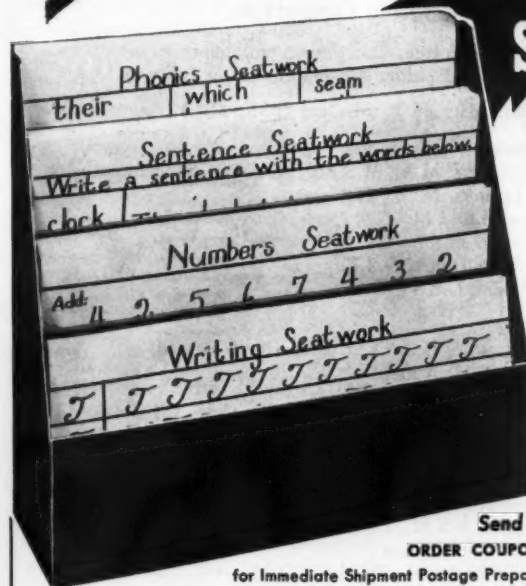 S
Phonics Seatwork
their which seam
Sentence Seatwork
Write a sentence with the words below.
clock
Numbers Seatwork
Add: 4 2 5 6 7 4 3 2
Writing Seatwork
T T T T T T T T T T
Send
ORDER COUPO
for Immediate Shipment Postage Prepa